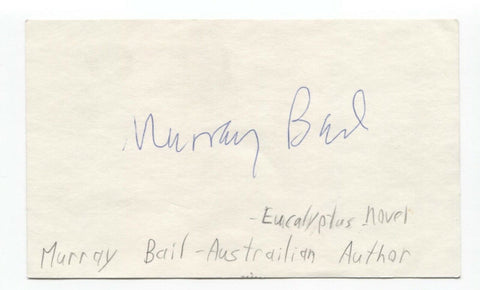 Murray Bail
-Eucalyptus Novel
Murray Bail-Austrailian Author